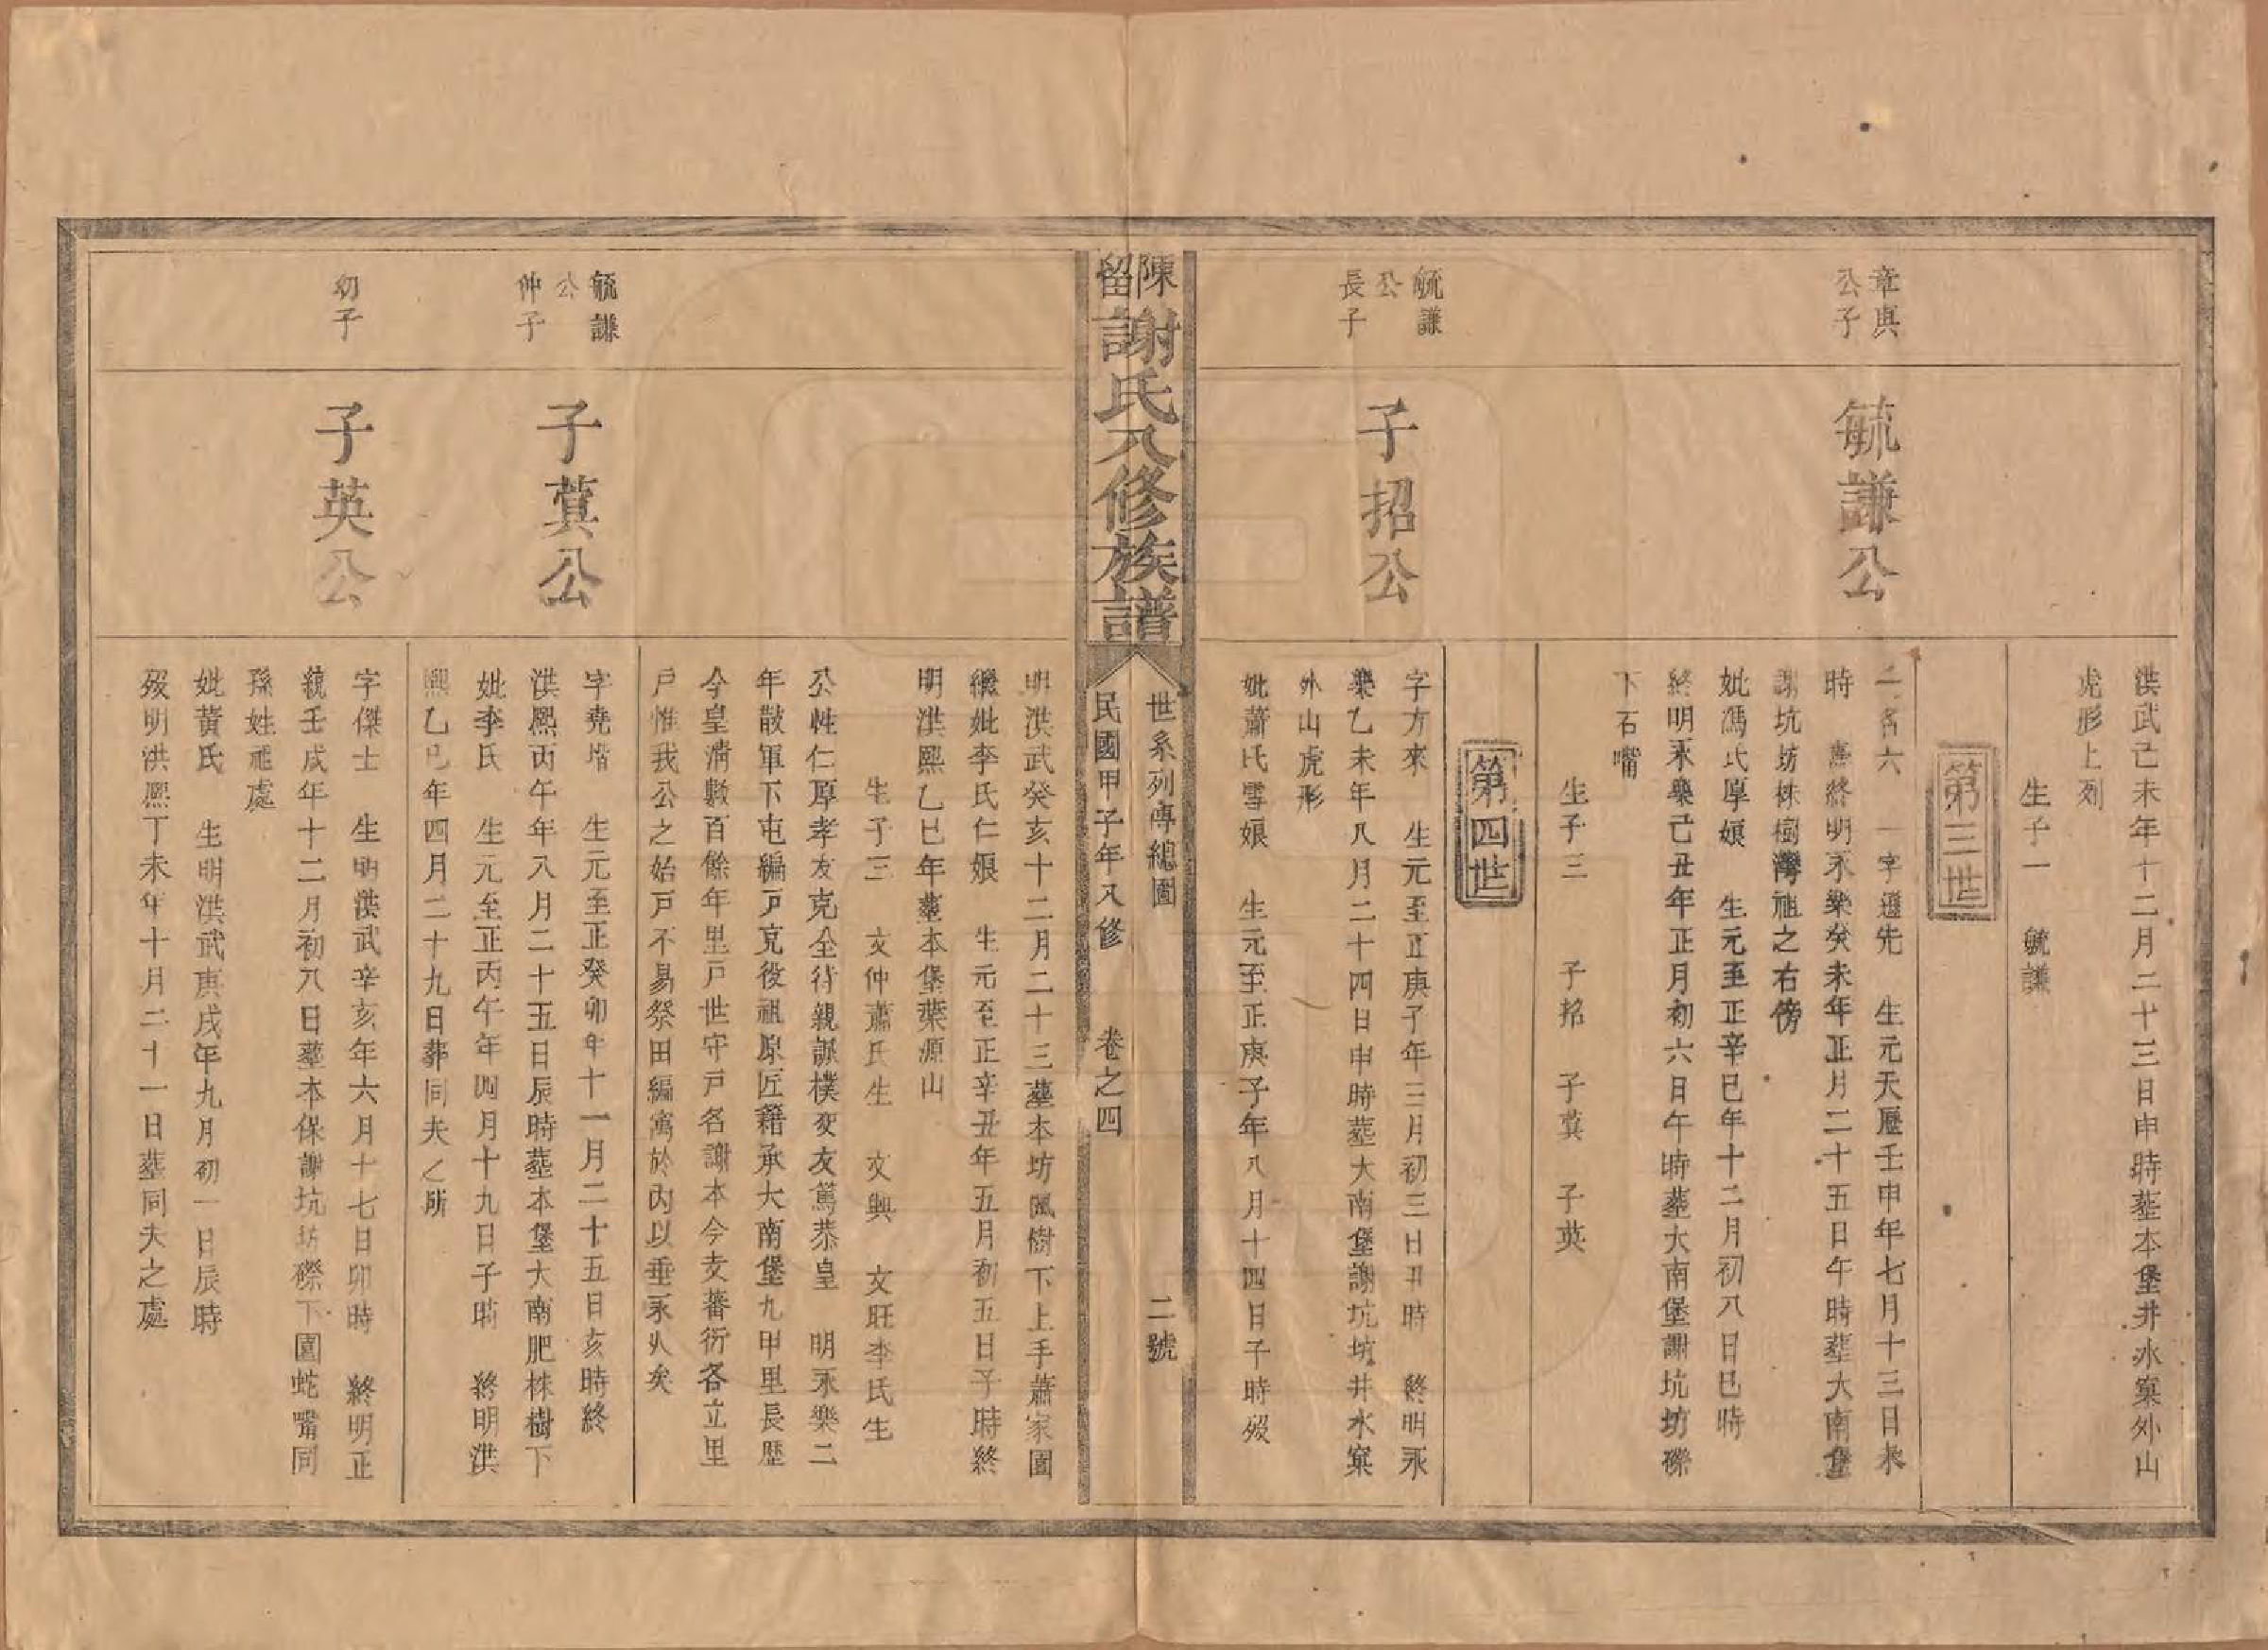 洪武己未年十二月二十三日申時塟本堡井水窠外山
虎形上列
生子一　毓謙
第三世
章與
公子
毓謙公
二名六　一字遜先　生元天曆壬申年七月十三日未
時　終明永樂癸未年正月二十五日午時塟大南堡
謝坑坊株樹灣祖之右傍
妣馮氏厚娘　生元至正辛巳年十二月初八日巳時
終明永樂己丑年正月初六日午時塟大南堡謝坑坊磜
下石嘴
生子三　子招　子蓂　子英
第四世
毓謙
公
長子
子招公
字方來　生元至正庚子年三月初三日丑時　終明永
樂乙未年八月二十四日申時塟大南堡謝坑坊井水窠
外山虎形
妣蕭氏雪娘　生元至正庚子年八月十四日子時歿
陳留謝氏八修族譜
世系列傳總圖　二號
民國甲子年八修　卷之四
明洪武癸亥十二月二十三塟本坊楓樹下上手蕭家園
繼妣李氏仁娘　生元至正辛丑年五月初五日子時終
明洪熙乙巳年塟本堡葉源山
生子三　文仲蕭氏生　文興　文旺李氏生
公性仁厚孝友克全待親誠樸交友篤恭皇　明永樂二
年散軍下屯編戶克役祖原匠籍承大南堡九甲里長歷
今皇淸數百餘年里戶世守戶名謝本今支蕃衍各立里
戶惟我公之始戶不易祭田編寓於內以垂永久矣
毓謙
公
仲子
子蓂公
字堯堦　生元至正癸卯年十一月二十五日亥時終
洪熙丙午年八月二十五日辰時塟本堡大南肥株樹下
妣李氏　生元至正丙午年四月十九日子時　終明洪
熙乙巳年四月二十九日葬同夫之所
幼子
子英公
字傑士　生明洪武辛亥年六月十七日卯時　終明正
統壬戌年十二月初八日塟本保謝坑坊磜下園蛇嘴同
孫姓祖處
妣黃氏　生明洪武庚戌年九月初一日辰時
歿明洪熙丁未年十月二十一日塟同夫之處